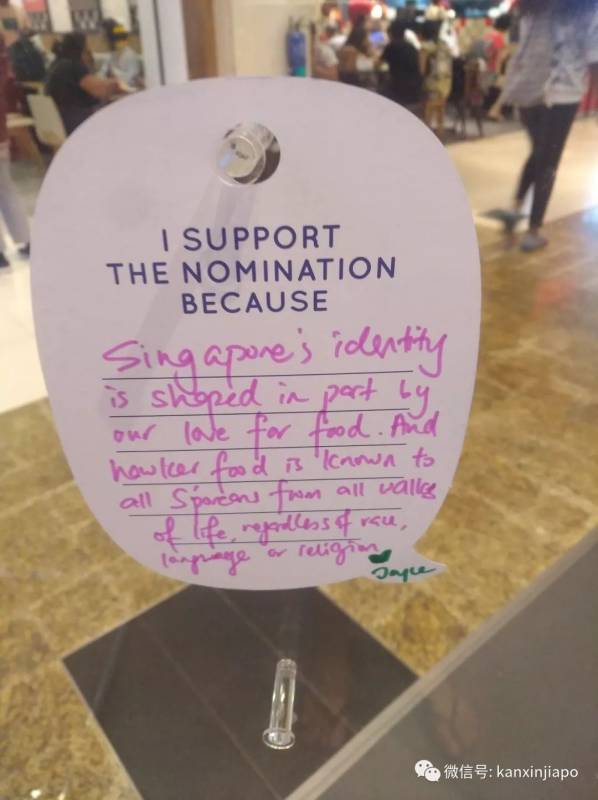 I SUPPORT
THE NOMINATION
BECAUSE
Singapore's identity
is shaped in part by
our love for food. And
hawker food is known to
all S'poreans from all walks
of life, regardless of race,
language or religion
Joyce
微信号: kanxinjiapo